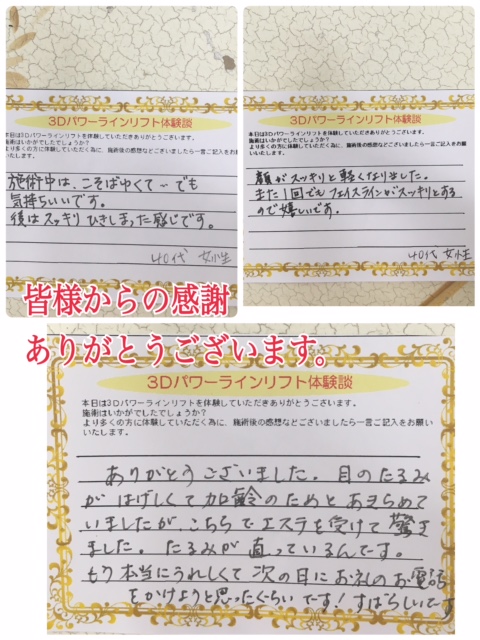 3Dパワーラインリフト体験談
本日は3Dパワーラインリフトを体験していただきありがとうございます。
施術はいかがでしたでしょうか?
より多くの方に体験していただく為に、施術後の感想などございましたら一言ご記入をお
いいたします。
施術中は、こそばゆくて〜でも
気持ちいいです。
後はスッキリひきしまった感じです。
40代 女性
3Dパワーラインリフト体験談
本日は3Dパワーラインリフトを体験していただきありがとうございます。
施術はいかがでしたでしょうか?
より多くの方に体験していただく為に、施術後の感想などございましたら一言ご記入をお願
いいたします。
顔がスッキリと軽くなりました。
また1回でもフェイスラインがスッキリとする
ので嬉しいです。
40代 女性
皆様からの感謝
ありがとうございます。
3Dパワーラインリフト体験談
本日は3Dパワーラインリフトを体験していただきありがとうございます。
施術はいかがでしたでしょうか?
より多くの方に体験していただく為に、施術後の感想などございましたら一言ご記入をお願い
いたします。
ありがとうございました。目のたるみ
がはげしくて加齢のためとあきらめて
いましたが、こちらでエステを受けて驚き
ました。たるみが直っているんです。
もう本当にうれしくて次の日にお礼のお電話
をかけようと思ったくらいでーす!すばらしいです